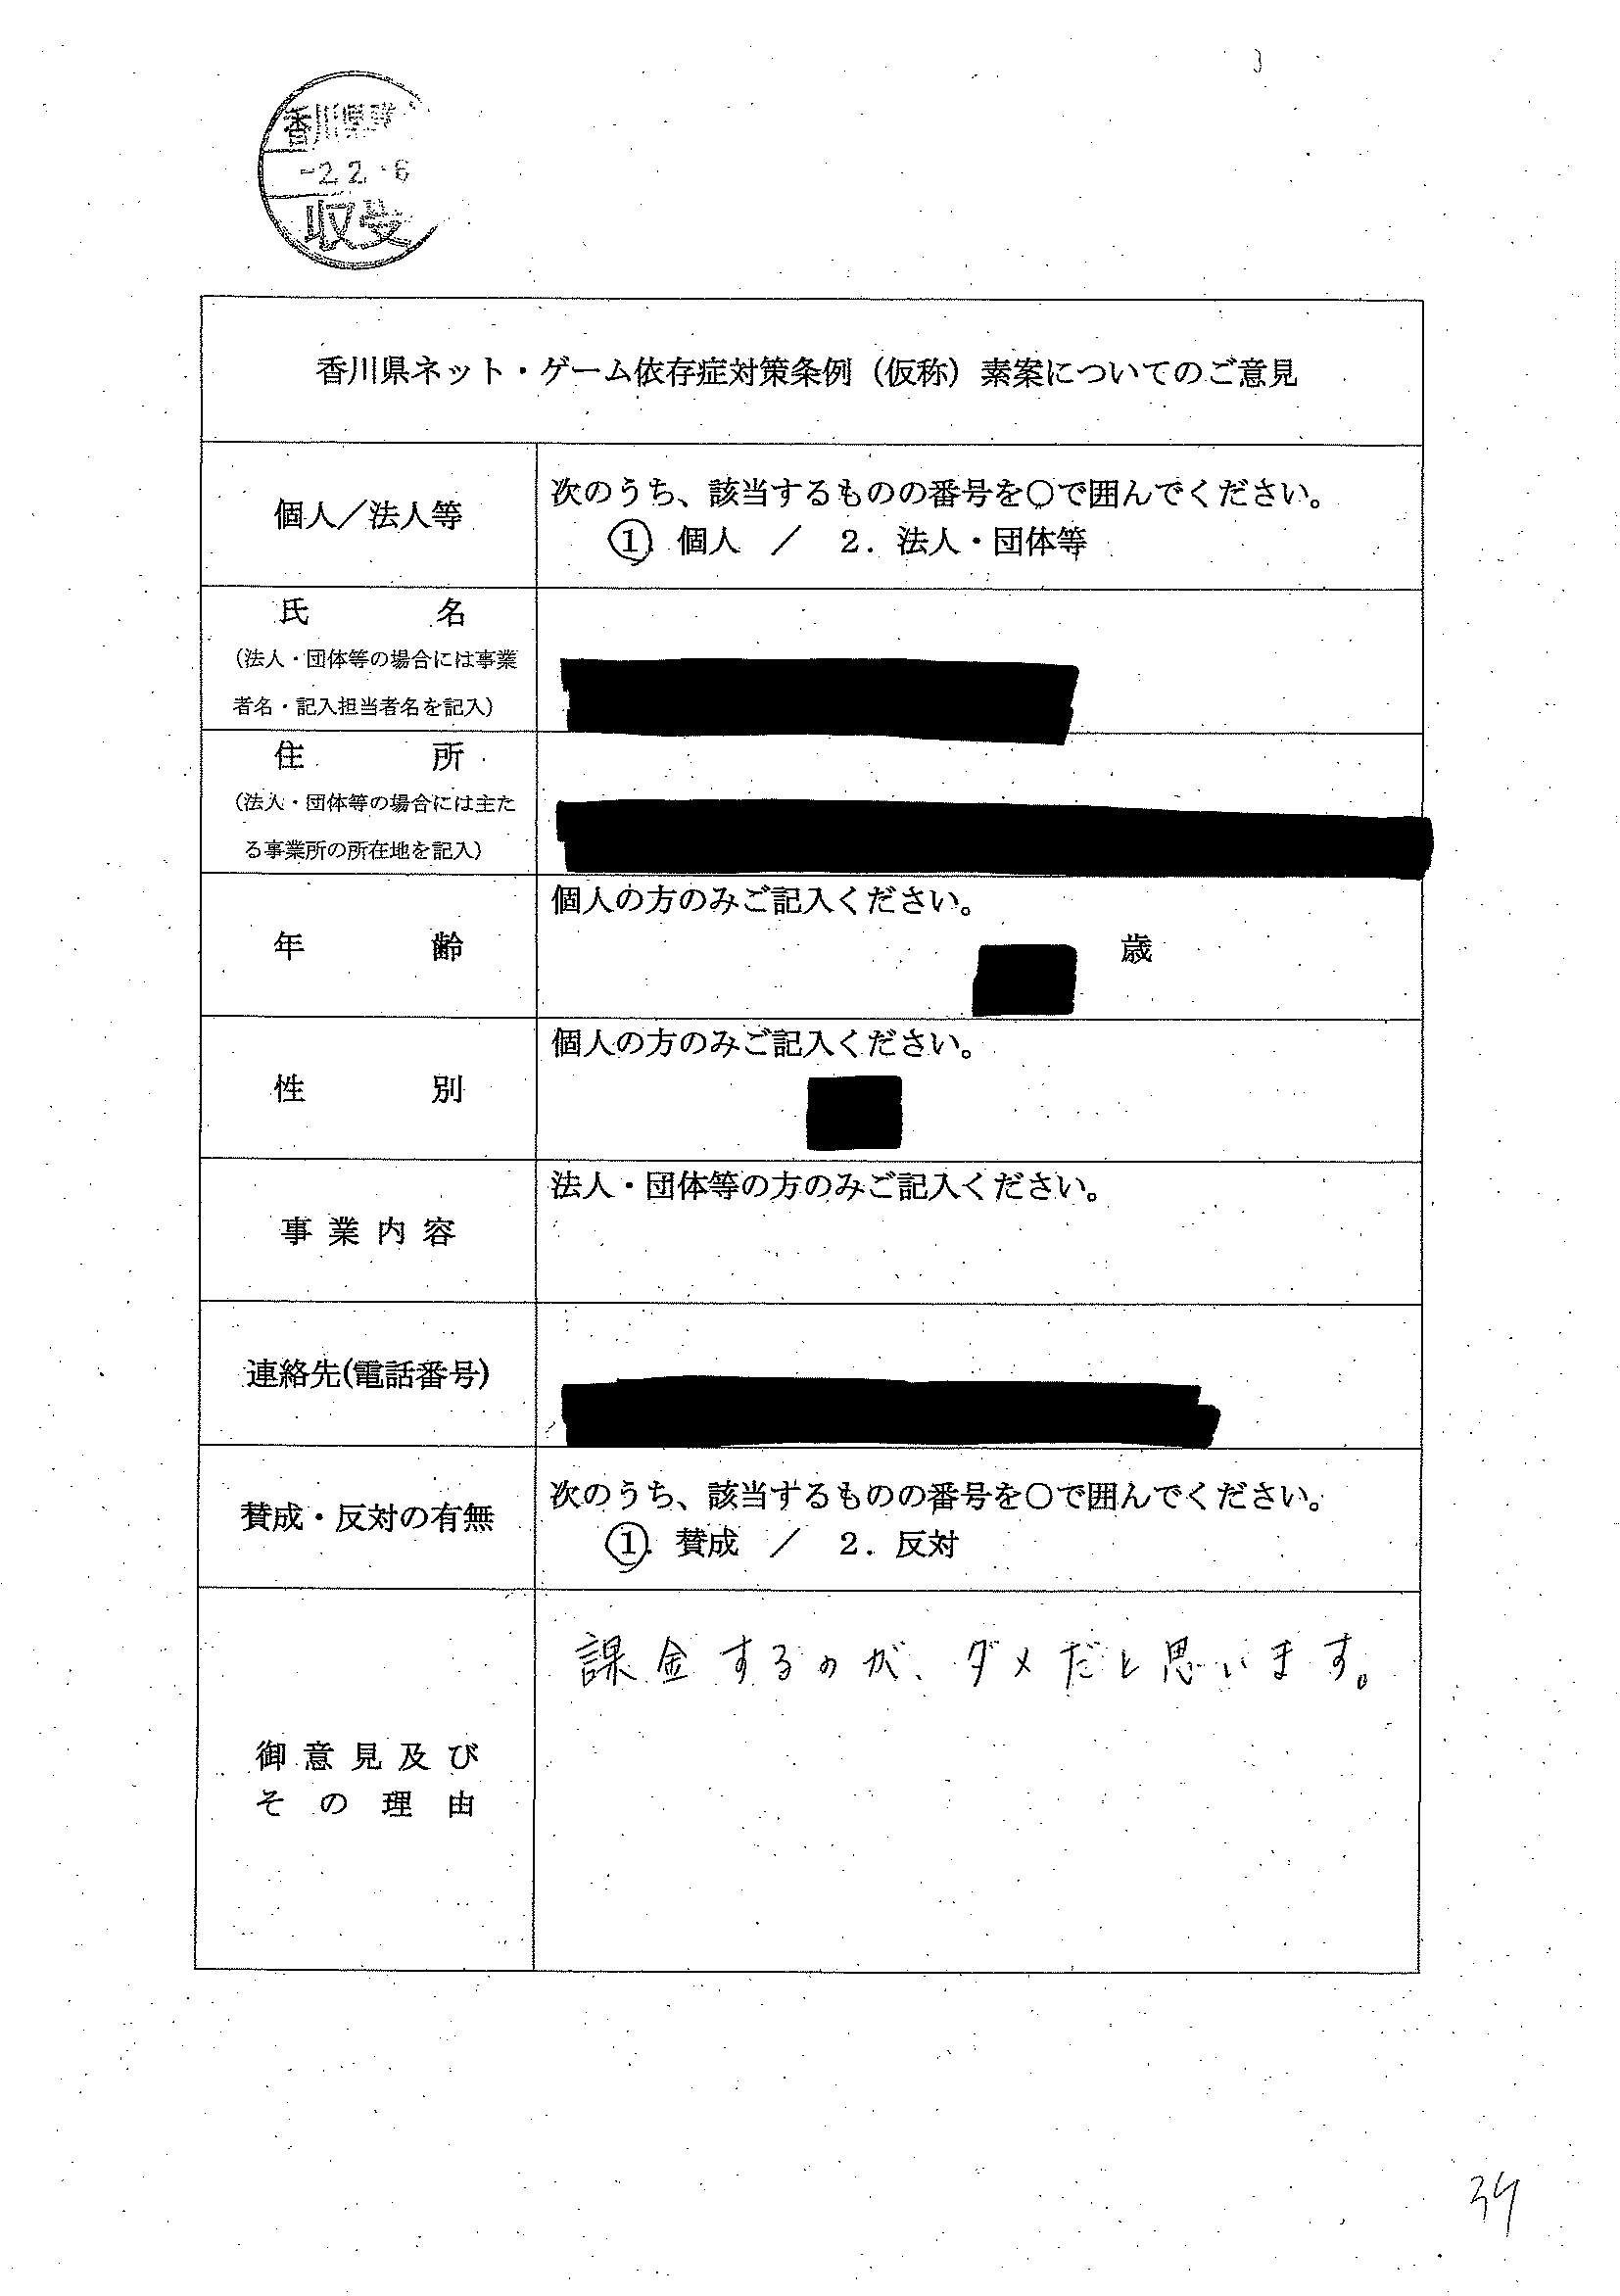 香川県
-2.2.6
収受
香川県ネット・ゲーム依存症対策条例（仮称）素案についてのご意見
個人／法人等
次のうち、該当するものの番号を○で囲んでください。
1. 個人 ／ 2. 法人・団体等
氏名
（法人・団体等の場合には事業
者名・記入担当者名を記入）
住所
（法人・団体等の場合には主た
る事業所の所在地を記入）
年齢
個人の方のみご記入ください。
歳
性別
個人の方のみご記入ください。
事業内容
法人・団体等の方のみご記入ください。
連絡先(電話番号)
賛成・反対の有無
次のうち、該当するものの番号を○で囲んでください。
1. 賛成 ／ 2. 反対
御意見及び
その理由
課金するのが、ダメだと思います。
34